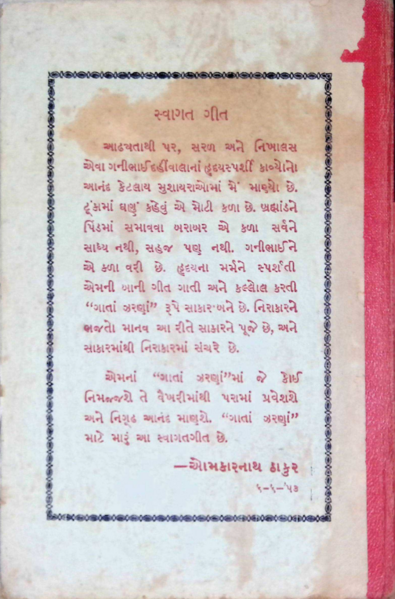 સ્વાગત ગીત
આઢ્યતાથી પર, સરળ અને નિખાલસ
એવા ગનીભાઈ દહીંવાલાનાં હૃદયસ્પર્શી કાવ્યોનો
આનંદ કેટલાય મુશાયરાઓમાં મેં માણ્યો છે.
ટૂંકામાં ઘણું કહેવું એ મોટી કળા છે. બ્રહ્માંડને
પિંડમાં સમાવવા બરાબર એ કળા સર્વને
સાધ્ય નથી, સહજ પણ નથી. ગનીભાઈને
એ કળા વરી છે. હૃદયના મર્મને સ્પર્શતી
એમની બાની ગીત ગાતી અને કલ્લોલ કરતી
“ગાતાં ઝરણાં” રૂપે સાકાર બને છે. નિરાકારને
ભજતો માનવ આ રીતે સાકારને પૂજે છે, અને
સાકારમાંથી નિરાકારમાં સંચરે છે.
એમનાં “ગાતાં ઝરણાં”માં જે કોઈ
નિમજ્જશે તે વૈખરીમાંથી પરામાં પ્રવેશશે
અને નિગૂઢ આનંદ માણશે. “ગાતાં ઝરણાં”
માટે મારું આ સ્વાગતગીત છે.
—ઓમકારનાથ ઠાકુર